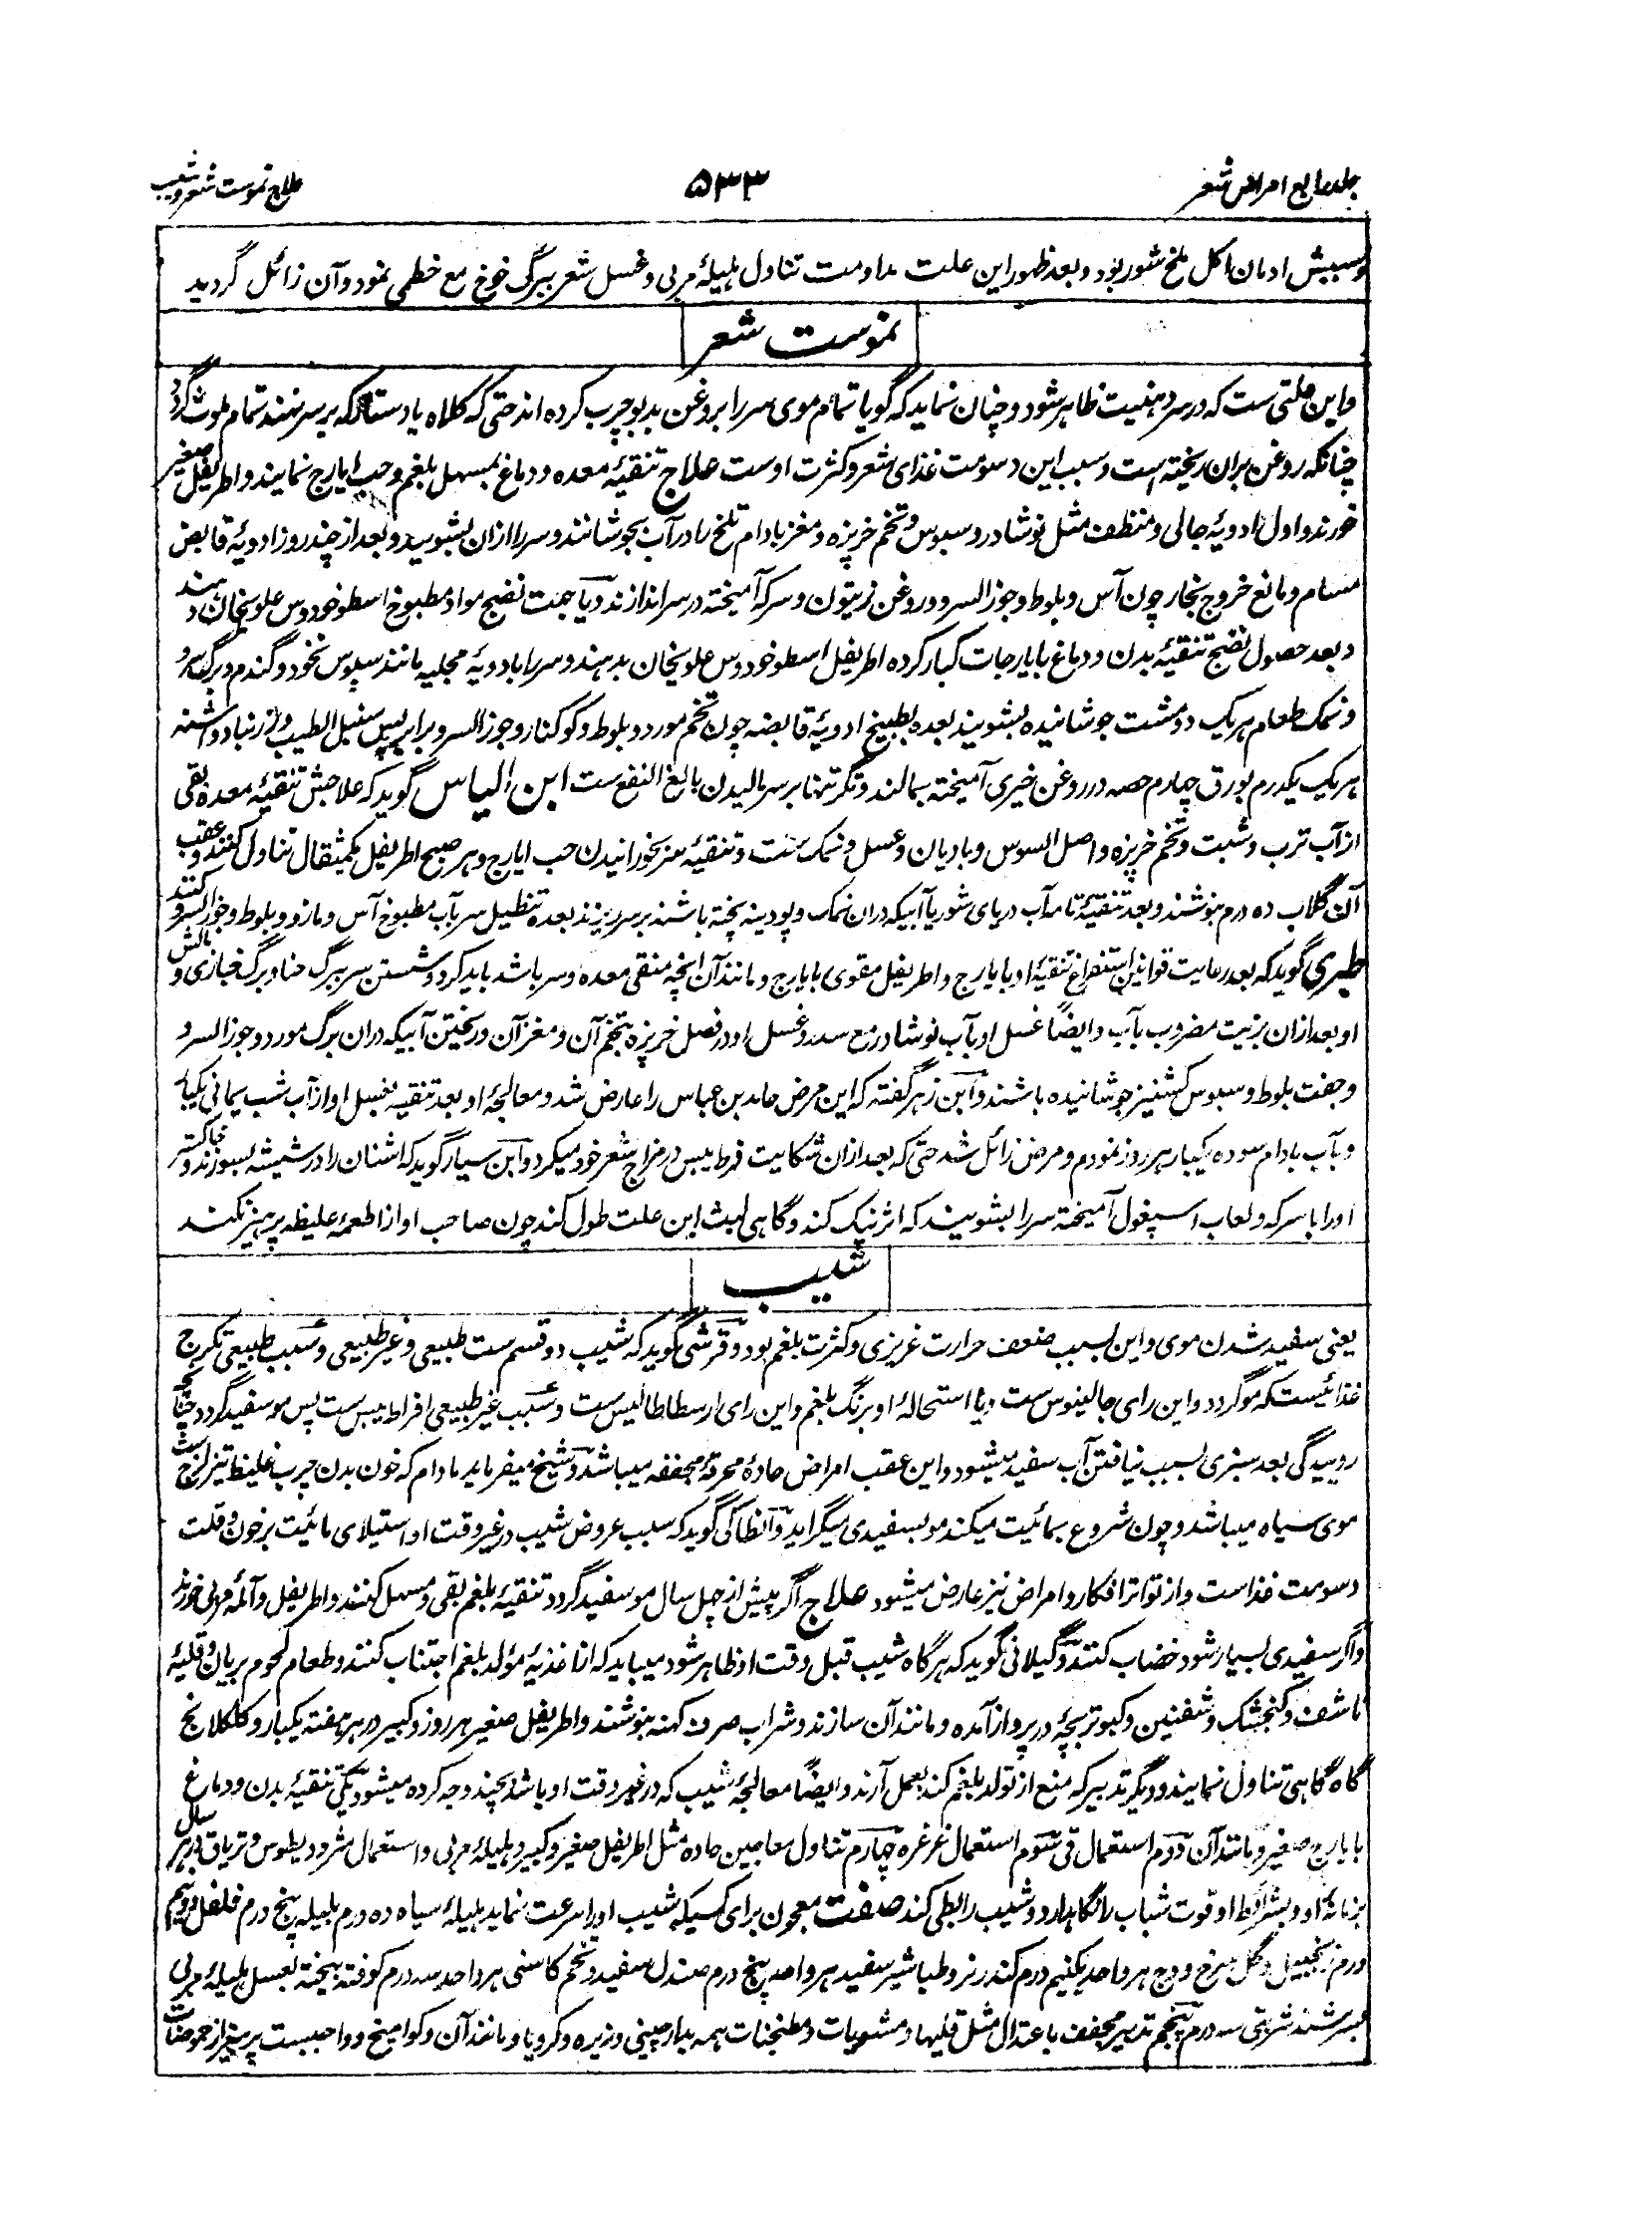 جلد رابع امراض شعر
۵۳۳
علاج نموست شعر و شیب
و سببش ادمان اکل ملح شور بود و بعد ظهور این علت مداومت تناول هلیلهٔ مربی و غسل شعر ببرگ خوخ مع خطمی نمود و آن زائل گردید
نموست شعر
و این علتی ست که در سر دهنیت ظاهر شود و چنان نماید که گویا تمام موی سر را بروغن بدبو چرب کرده اند حتی که کلاه یا دستار که بر سر نهند تمام ملوث گردد
چنانکه روغن بران ریخته است و سبب این دسومت غذای شعر و کثرت اوست علاج تنقیهٔ معده و دماغ بمسهل بلغم و حب ایارج نمایند و اطریفل صغیر
خورند و اول ادویهٔ جالی و منظف مثل نوشادر و سبوس و تخم خرپزه و مغز بادام تلخ را در آب بجوشانند و سر را ازان بشویند و بعد از چند روز ادویهٔ قابض
مسام و مانع خروج بخار چون آس و بلوط و جوز السرو و روغن زیتون و سرکه آمیخته در سر اندازند و یا جهت نضج مواد مطبوخ اسطوخودوس علویخان دهند
و بعد حصول نضج تنقیهٔ بدن و دماغ بایارجات کبار کرده اطریفل اسطوخودوس علویخان بدهند و سر را بادویهٔ مجلیه مانند سبوس نخود و گندم و برگ سرو
و نمک طعام هر یک دو مشت جوشانیده بشویند بعده بطبیخ ادویهٔ قابضه چون تخم مورد و بلوط و کوکنار و جوز السرو برابر پس سنبل الطیب و زرنباد و اشنه
هر یک یکدرم بورق چهارم حصه در روغن خیری آمیخته بمالند و تگر تنها بر سر مالیدن بالغ النفع ست ابن الیاس گوید که علاجش تنقیهٔ معده بقی
از آب ترب و شبت و تخم خرپزه و اصل السوس و بادیان و عسل و نمک ست و تنقیهٔ سر بخورانیدن حب ایارج و هر صبح اطریفل یکمثقال تناول کنند و عقب
آن گلاب ده درم بنوشند و بعد تنقیهٔ تامه آب دریای شور یا آبیکه دران نمک و پودینه پخته باشند بر سر ریزند بعده تنطیل سر بآب مطبوخ آس و مازو و بلوط و جوز السرو کنند
طبری گوید که بعد رعایت قوانین استفراغ تنقیهٔ او بایارج و اطریفل مقوی بایارج و مانند آن انچه منقی معده و سر باشد باید کرد و شستن سر ببرگ حنا و برگ خبازی و مالش
او بعد ازان بزیت مضروب بآب و ایضاً غسل او بآب نوشادر مع سدر و غسل او در فصل خرپزه بتخم آن و مغز آن و ریختن آبیکه دران برگ مورد و جوز السرو
و جفت بلوط و سبوس کشنیز جوشانیده باشند و ابن زهر گفته که این مرض حامد بن عباس را عارض شد و معالجهٔ او بعد تنقیه بغسل او از آب شب یمانی یکبار
و بآب بادام سوده یکبار هر روز نمودم و مرض زائل شد حتی که بعد ازان شکایت فرط یبس در مزاج شعر خود میکرد و ابن سیار گوید که اشنان را در شیشه بسوزند و خاکستر
او را با سرکه و لعاب اسپغول آمیخته سر را بشویند که اثر نیک کند و گاهی لبث این علت طول کند چون صاحب او از اطعمهٔ غلیظه پرهیز نکند
شیب
یعنی سفید شدن موی و این بسبب ضعف حرارت غریزی و کثرت بلغم بود و قرشی گوید که شیب دو قسم ست طبیعی و غیر طبیعی و سبب طبیعی تکرج
غذائیست که مو گردد و این رای جالینوس ست و یا استحالهٔ او برنگ بلغم و این رای ارسطاطالیس ست و سبب غیر طبیعی افراط یبس ست پس مو سفید گردد چنانکه
روییدگی بعد سبزی بسبب نیافتن آب سفید میشود و این عقب امراض حادهٔ محرقهٔ مجففه میباشد و شیخ میفرماید مادام که خون بدن چرب غلیظ تیز لزج ست
موی سیاه میباشد و چون شروع بمائیت میکند مو بسفیدی میگراید و انطاکی گوید که سبب عروض شیب در غیر وقت او استیلای مائیت بر خون و قلت
دسومت غذاست و از تواتر افکار و امراض نیز عارض میشود علاج اگر پیش از چهل سال مو سفید گردد تنقیهٔ بلغم بقی و مسهل کنند و اطریفل و آملهٔ مربی خورند
و اگر سفیدی بسیار شود خضاب کنند و گیلانی گوید که هرگاه شیب قبل وقت او ظاهر شود میباید که از اغذیهٔ مولد بلغم اجتناب کنند و طعام لحوم بریان و قلیهٔ
ناشف و کنجشک و شفنین و کبوتر بچهٔ در پرواز آمده و مانند آن سازند و شراب صرف کهنه بنوشند و اطریفل صغیر هر روز و کبیر در هر هفته یکبار و کلکلانج
گاه گاهی تناول نمایند و دیگر تدبیر که منع از تولد بلغم کند بعمل آرند و ایضاً معالجهٔ شیب که در غیر وقت او باشد بچند وجه کرده میشود یکی تنقیهٔ بدن و دماغ
بایارج صغیر و مانند آن دوم استعمال قی سوم استعمال غرغره چهارم تناول معاجین حاده مثل اطریفل صغیر و کبیر و هلیلهٔ مربی و استعمال مثرودیطوس و تریاق در هر سال
بزمانهٔ او و بشرائط او قوت شباب را نگاهدارد و شیب را بطی کند صفت معجون برای کسیکه شیب او را سرعت نماید هلیلهٔ سیاه ده درم بلیله پنج درم فلفل دو نیم
درم زنجبیل و گل سرخ و وج هر واحد یکنیم درم کندر نر و طباشیر سفید هر واحد پنج درم صندل سفید و تخم کاسنی هر واحد سه درم کوفته بیخته بعسل هلیلهٔ مربی
بسرشند شربتی سه درم پنجم تدبیر مجفف باعتدال مثل قلیها و مشویات و مطنجنات همه بدارچینی و زیره و کرویا و مانند آن و کوامیخ و واجبست پرهیز از حموضات